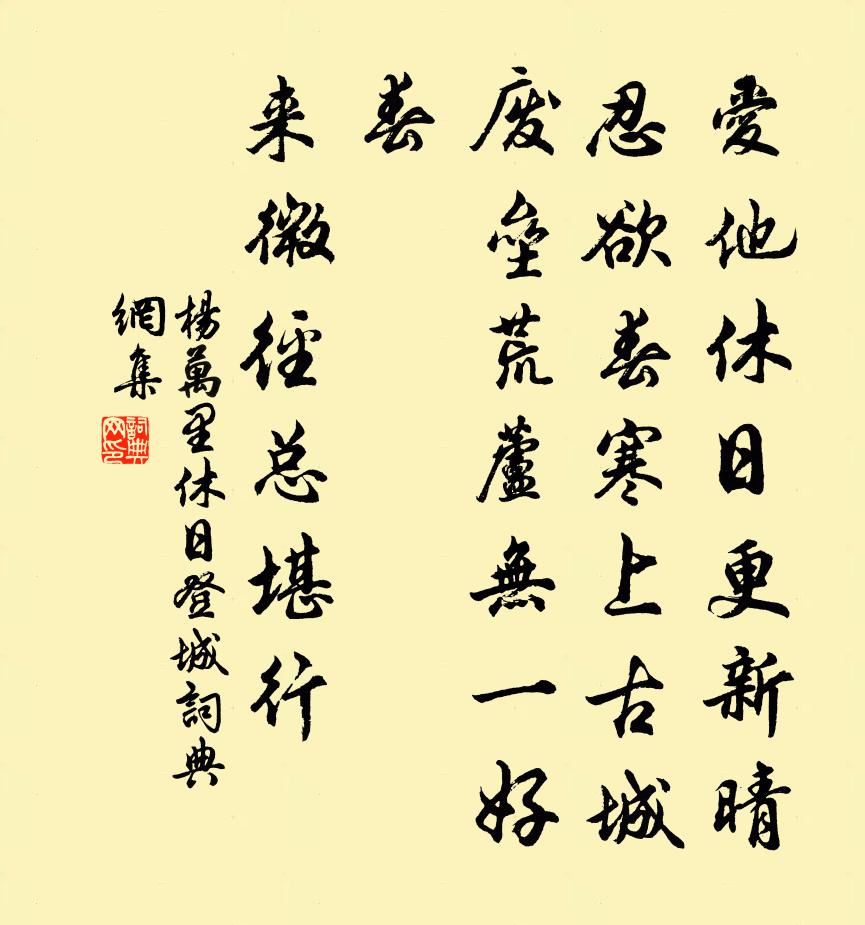 愛他休日更新晴
忍欲春寒上古城
廢壘荒蘆無一好
春
来微徑总堪行
楊萬里休日登城詞典
網集
詞典
网印